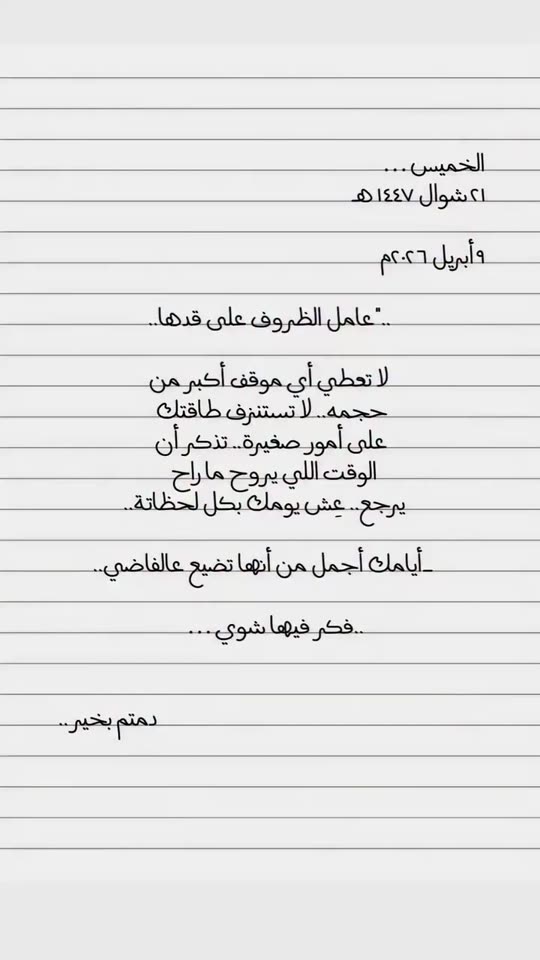 الخميس...
٢١ شوال ١٤٤٧ هـ
٩ أبريل ٢٠٢٦م
.."عامل الظروف على قدها..
لا تعطي أي موقف أكبر من
حجمه.. لا تستنزف طاقتك
على أمور صغيرة.. تذكر أن
الوقت اللي يروح ما راح
يرجع.. عِش يومك بكل لحظاتة..
_أيامك أجمل من أنها تضيع عالفاضي..
..فكر فيها شوي...
دمتم بخير..